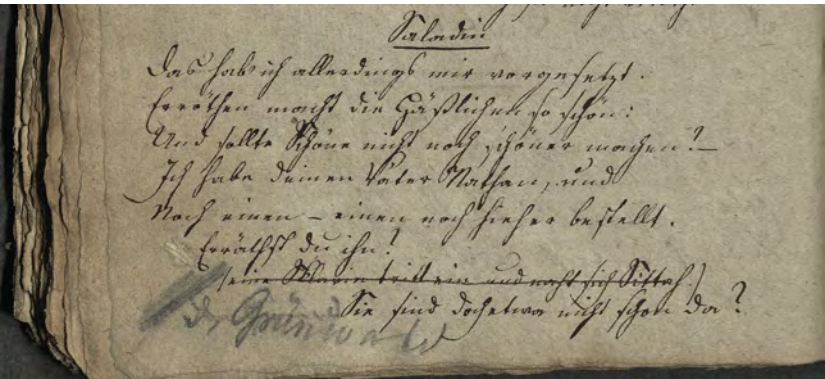 Saladin
Das hab ich allerdings mir vorgesetzt.
Erröthen macht die Häßlichen so schön:
Und sollte Schöne nicht noch schöner machen? –
Ich habe deinen Vater Nathan, und
Noch einen – einen noch hieher bestellt.
Erräthst du ihn?
(eine Sklavin tritt ein und naht sich Sittah.)
Sie sind doch etwa nicht schon da?